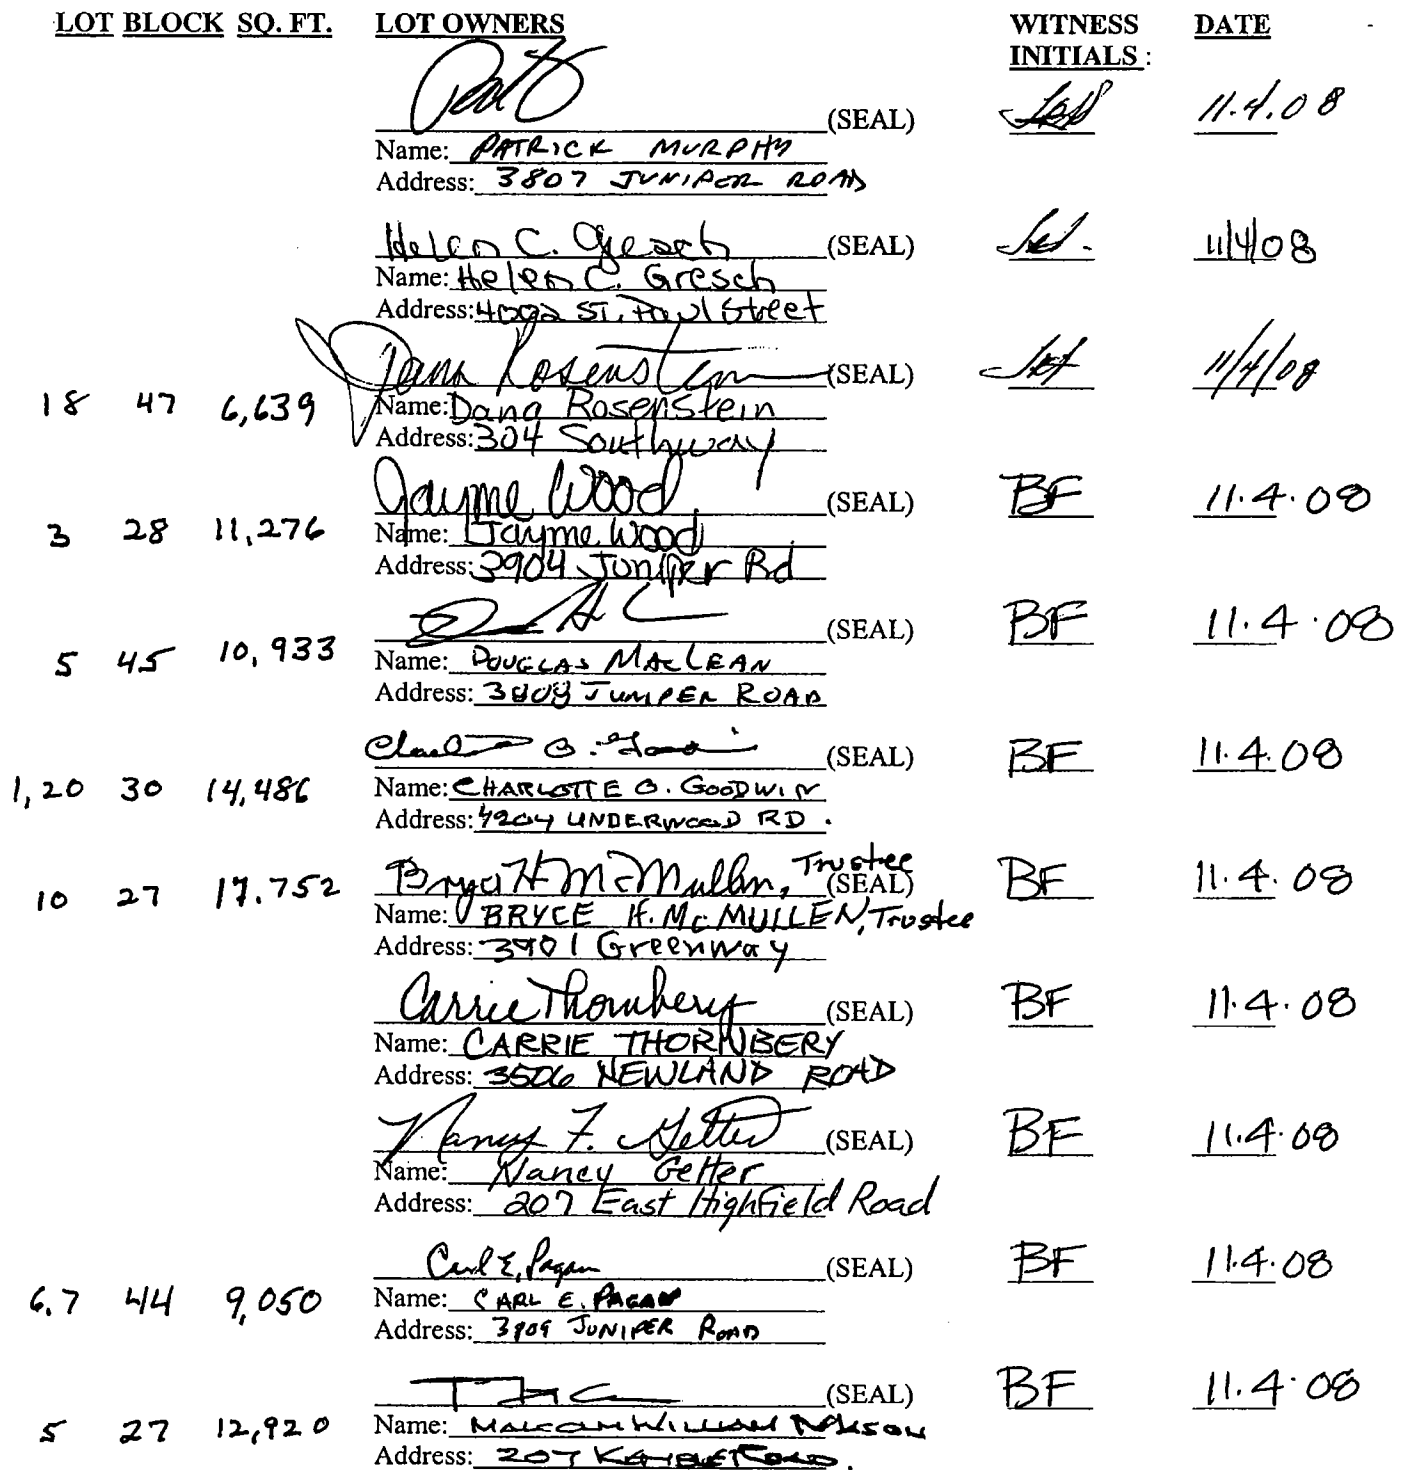 LOT BLOCK SQ. FT. LOT OWNERS WITNESS INITIALS : DATE
(SEAL) 11.4.08
Name: PATRICK MURPHY
Address: 3807 JUNIPER ROAD
Helen C. Gresch (SEAL) 11/4/08
Name: Helen C. Gresch
Address: 4002 St. Paul Street
Dana Rosenstein (SEAL) 11/4/08
18 47 6,639 Name: Dana Rosenstein
Address: 304 Southway
Jayme Wood (SEAL) BF 11.4.08
3 28 11,276 Name: Jayme Wood
Address: 3904 Juniper Rd
(SEAL) BF 11.4.08
5 45 10,933 Name: DOUGLAS MACLEAN
Address: 3808 JUNIPER ROAD
(SEAL) BF 11.4.08
1,20 30 14,486 Name: CHARLOTTE O. GOODWIN
Address: 4204 UNDERWOOD RD.
Bryce H McMullen, Trustee (SEAL) BF 11.4.08
10 27 17.752 Name: BRYCE H. McMULLEN, Trustee
Address: 3901 Greenway
Carrie Thornbery (SEAL) BF 11.4.08
Name: CARRIE THORNBERY
Address: 3506 NEWLAND ROAD
Nancy F. Getter (SEAL) BF 11.4.08
Name: Nancy Getter
Address: 207 East Highfield Road
Carl E. Pagan (SEAL) BF 11.4.08
6,7 44 9,050 Name: CARL E. PAGAN
Address: 3909 JUNIPER ROAD
(SEAL) BF 11.4.08
5 27 12,920 Name: MALCOLM WILLIAM
Address: 207